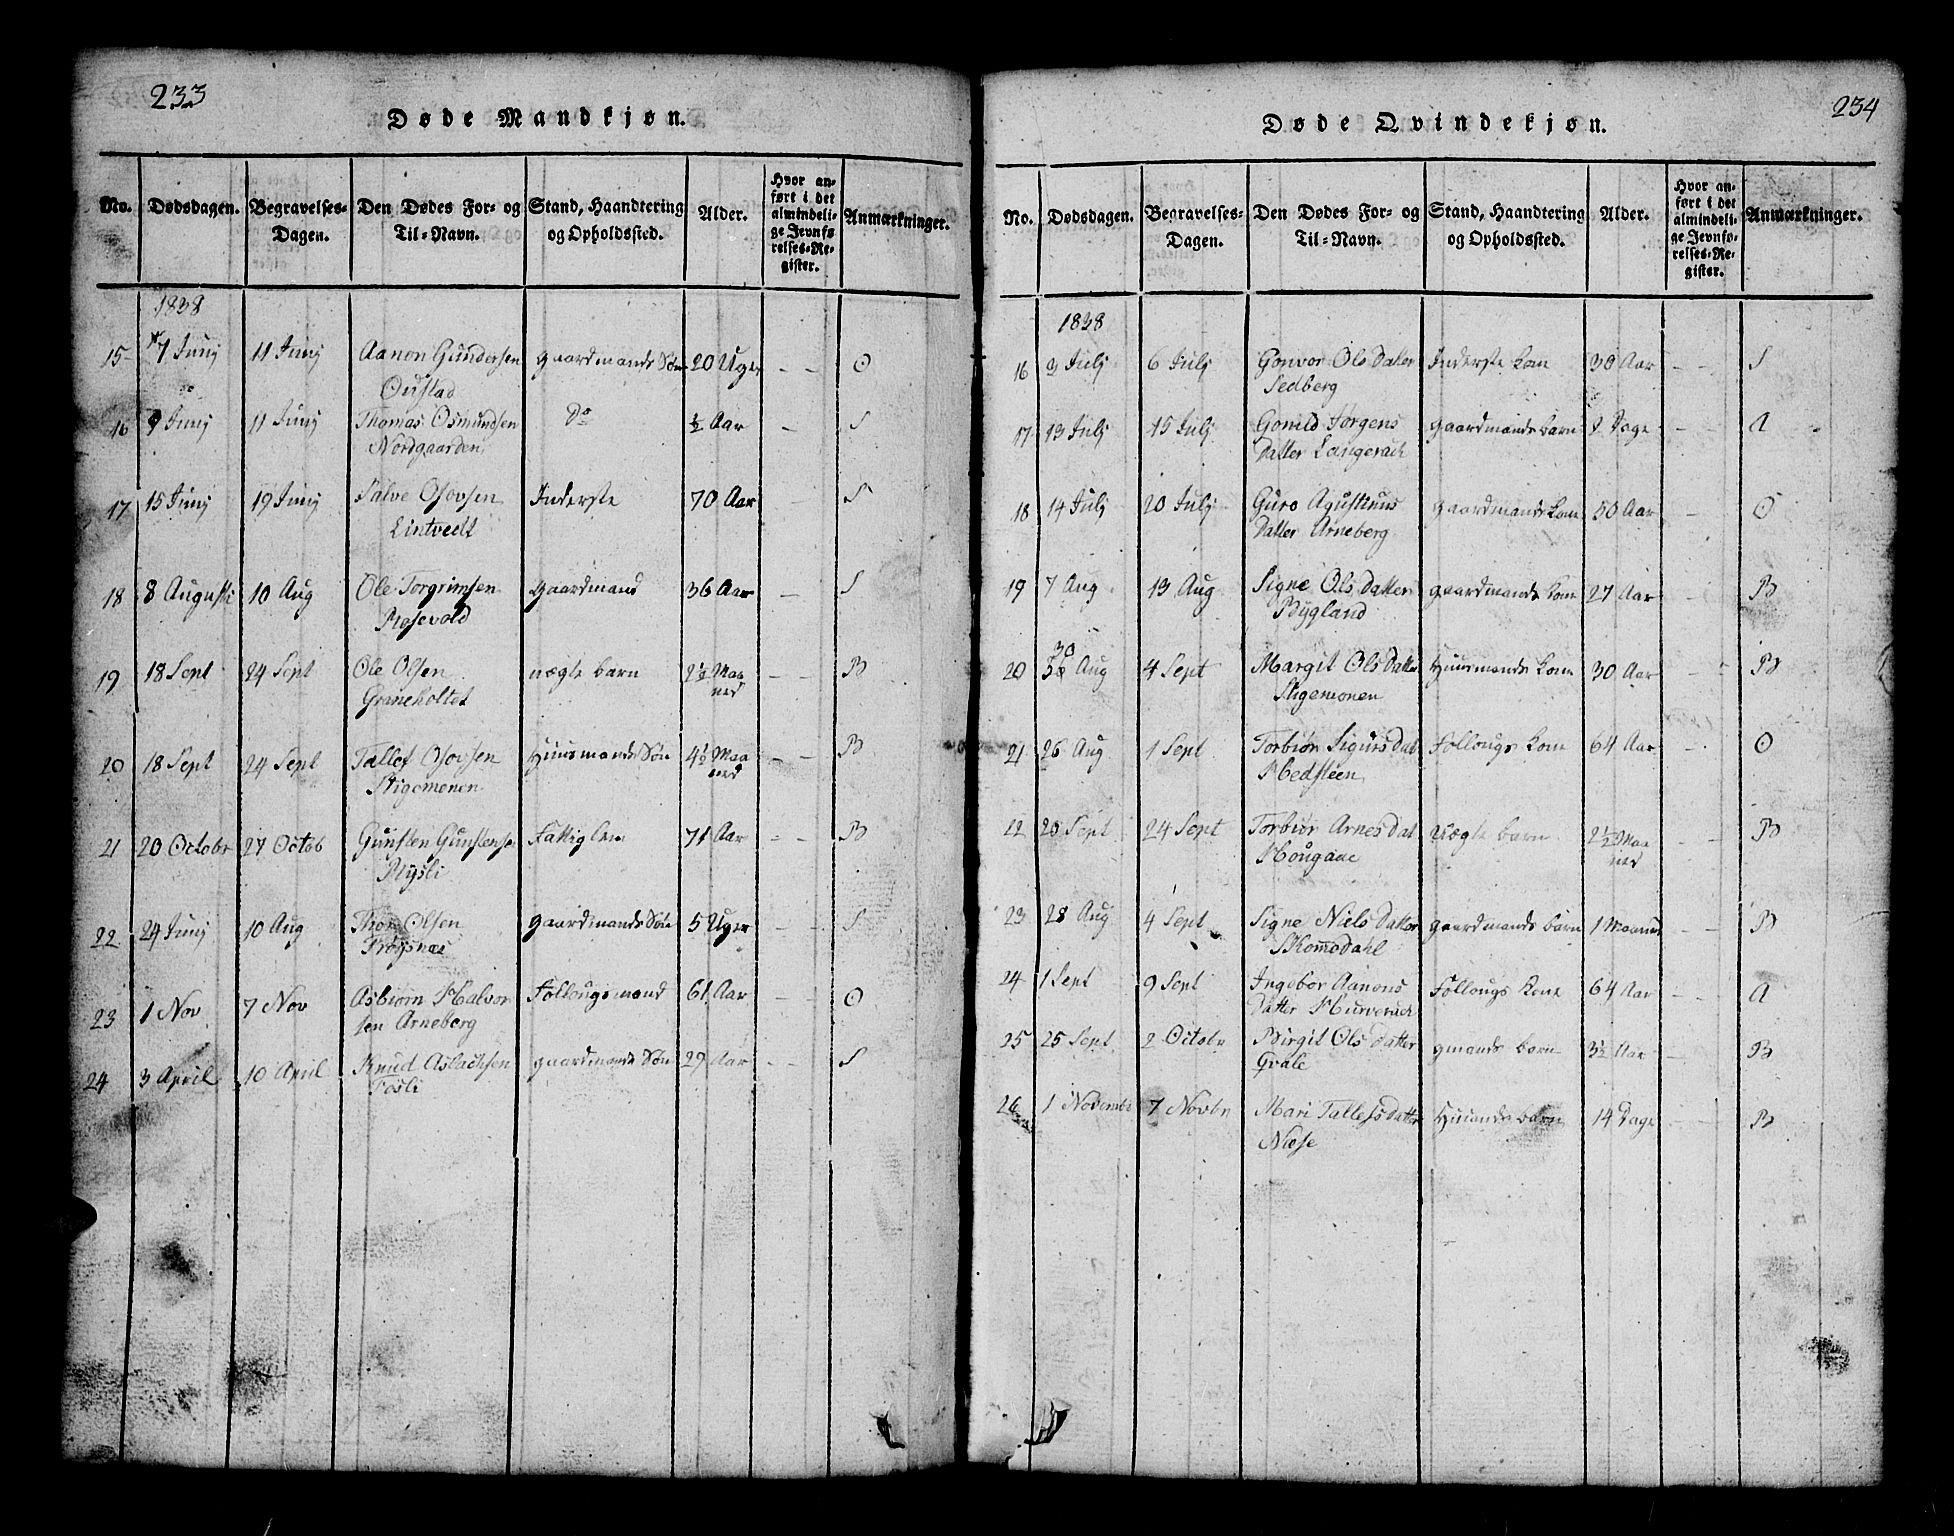 233
Døde Mandkjøn.
No. Dødsdagen. Begravelses-Dagen. Den Dødes For- og Til-Navn. Stand, Haandtering og Opholdssted. Alder. Hvor anført i det almindelige Jevnførelses-Register. Anmærkninger.
1838
15 7 Junj 11 Junj Aanon Gundersen gaardmands Søn 20 Uger - - O
Oustad
16 9 Junj 11 Junj Thomas Osmundsen Do ½ Aar - S
Nordgaarden
17 15 Junj 19 Junj Salve Osovsen Inderste 70 Aar S
Lintvedt
18 8 Augusti 10 Aug Ole Torgrimsen gaardmand 36 Aar - S
Rosevold
19 18 Sept 24 Sept Ole Olsen nægte barn 2½ Maa - - B
Graneholtet ned
20 18 Sept 24 Sept Tallef Osovsen Huusmands Søn 4½ Maa - - B
Stigemonen ned
21 20 Octobr 27 Octob Gunsten Gunstense Fattiglem 71 Aar - - B
Rysli
22 24 Junj 10 Aug Thor Olsen gaardmands Søn 5 Uger - - S
Frøysnæs
23 1 Nov 7 Nov Asbiørn Halvor Føllougsmand 61 Aar - - O
sen Arneberg
24 3 April 10 April Knud Aslachsen gaardmands Søn 29 Aar - - S
Fosli
234
Døde Qvindekjøn.
No. Dødsdagen. Begravelses-Dagen. Den Dødes For- og Til-Navn. Stand, Haandtering og Opholdssted. Alder. Hvor anført i det almindelige Jevnførelses-Register. Anmærkninger.
1838
16 3 Julj 6 Julj Gonvor Ols Datter Inderste kone 30 Aar - - S
Sedberg
17 13 Julj 15 Julj Gonild Jørgens gaardmands barn Dage - - A
Datter Langerach
18 14 Julj 20 Julj Guro Agustinus gaardmands kone 50 Aar - O
Datter Arneberg
19 7 Aug 13 Aug Signe Ols Datter gaardmands kone 27 Aar - B
Bygland
30
20 Aug 4 Sept Margit Ols Datter Huusmands kone 30 Aar - - B
Stigemonen
21 26 Aug 1 Sept Torbiør Sigursdat Føllougs kone 64 Aar - O
Hedsteen
22 20 Sept 24 Sept Torbiør Arnesdat Uægte barn 2½ Maa - - B
Hougaae ned
23 28 Aug 4 Sept Signe Niels Datter gaardmands barn 1 Maaned - - B
Skomedahl
24 1 Sept 9 Sept Ingebor Aanons Føllougs kone 64 Aar - - A
Datter Hurverach
25 25 Sept 2 Octobr Birgit Ols Datter gmands barn 3½ Aar - B
Qvale
26 1 Novemb 7 Novbr Mari Tallefsdatter Hmands barn 14 Dage - - B
Næse